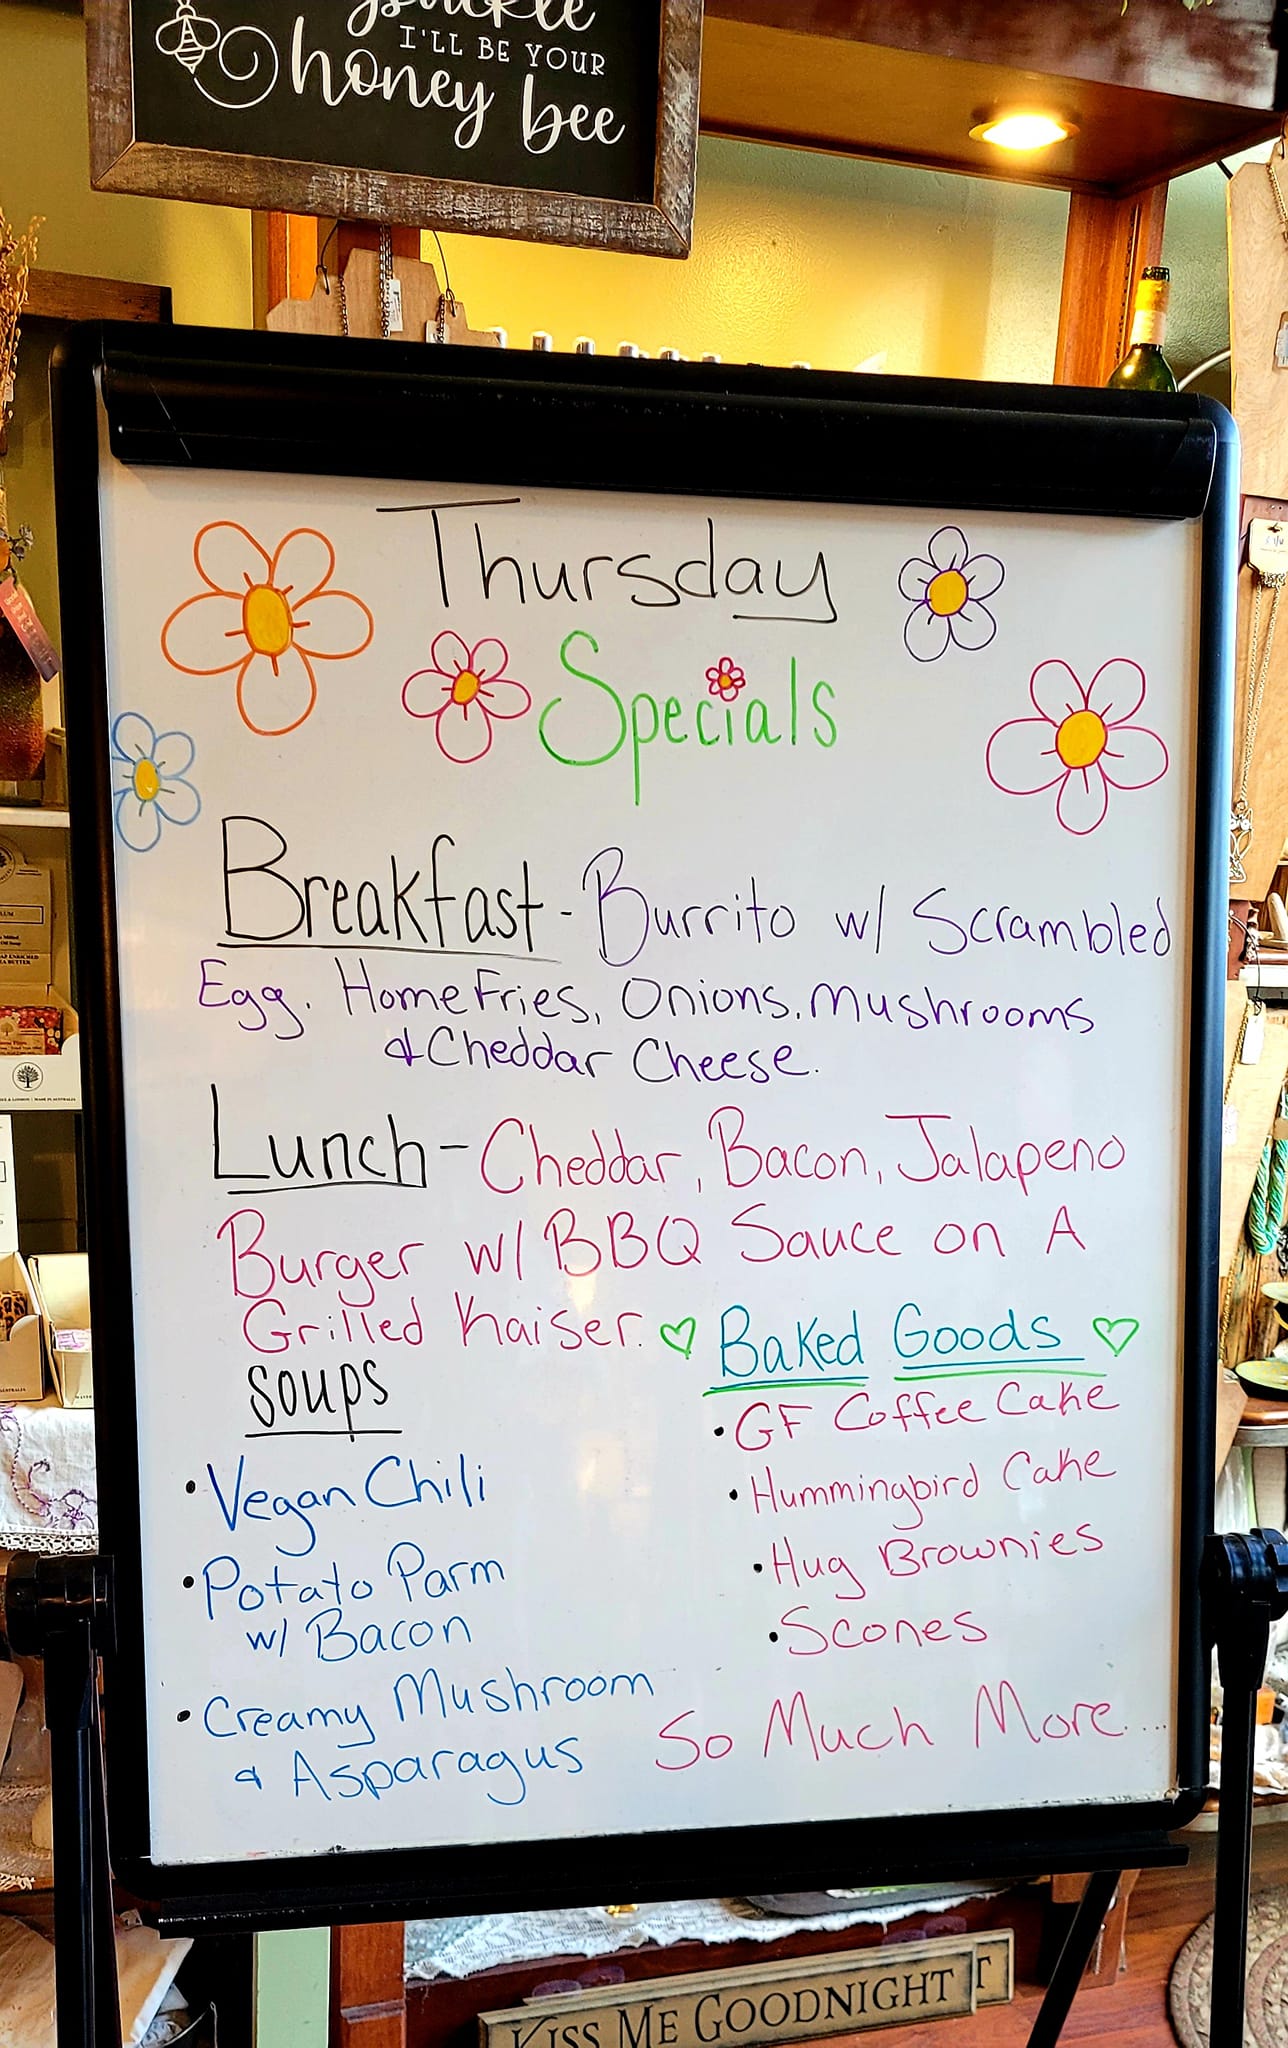 I'LL BE YOUR
honey bee
Thursday
Specials
Breakfast - Burrito w/ Scrambled
Egg. Home Fries, Onions, Mushrooms
& Cheddar Cheese.
Lunch - Cheddar, Bacon, Jalapeno
Burger w/ BBQ Sauce on A
Grilled Kaiser.
Soups
• Vegan Chili
• Potato Parm
w/ Bacon
• Creamy Mushroom
& Asparagus
Baked Goods
• GF Coffee Cake
• Hummingbird Cake
• Hug Brownies
• Scones
So Much More....
KISS ME GOODNIGHT